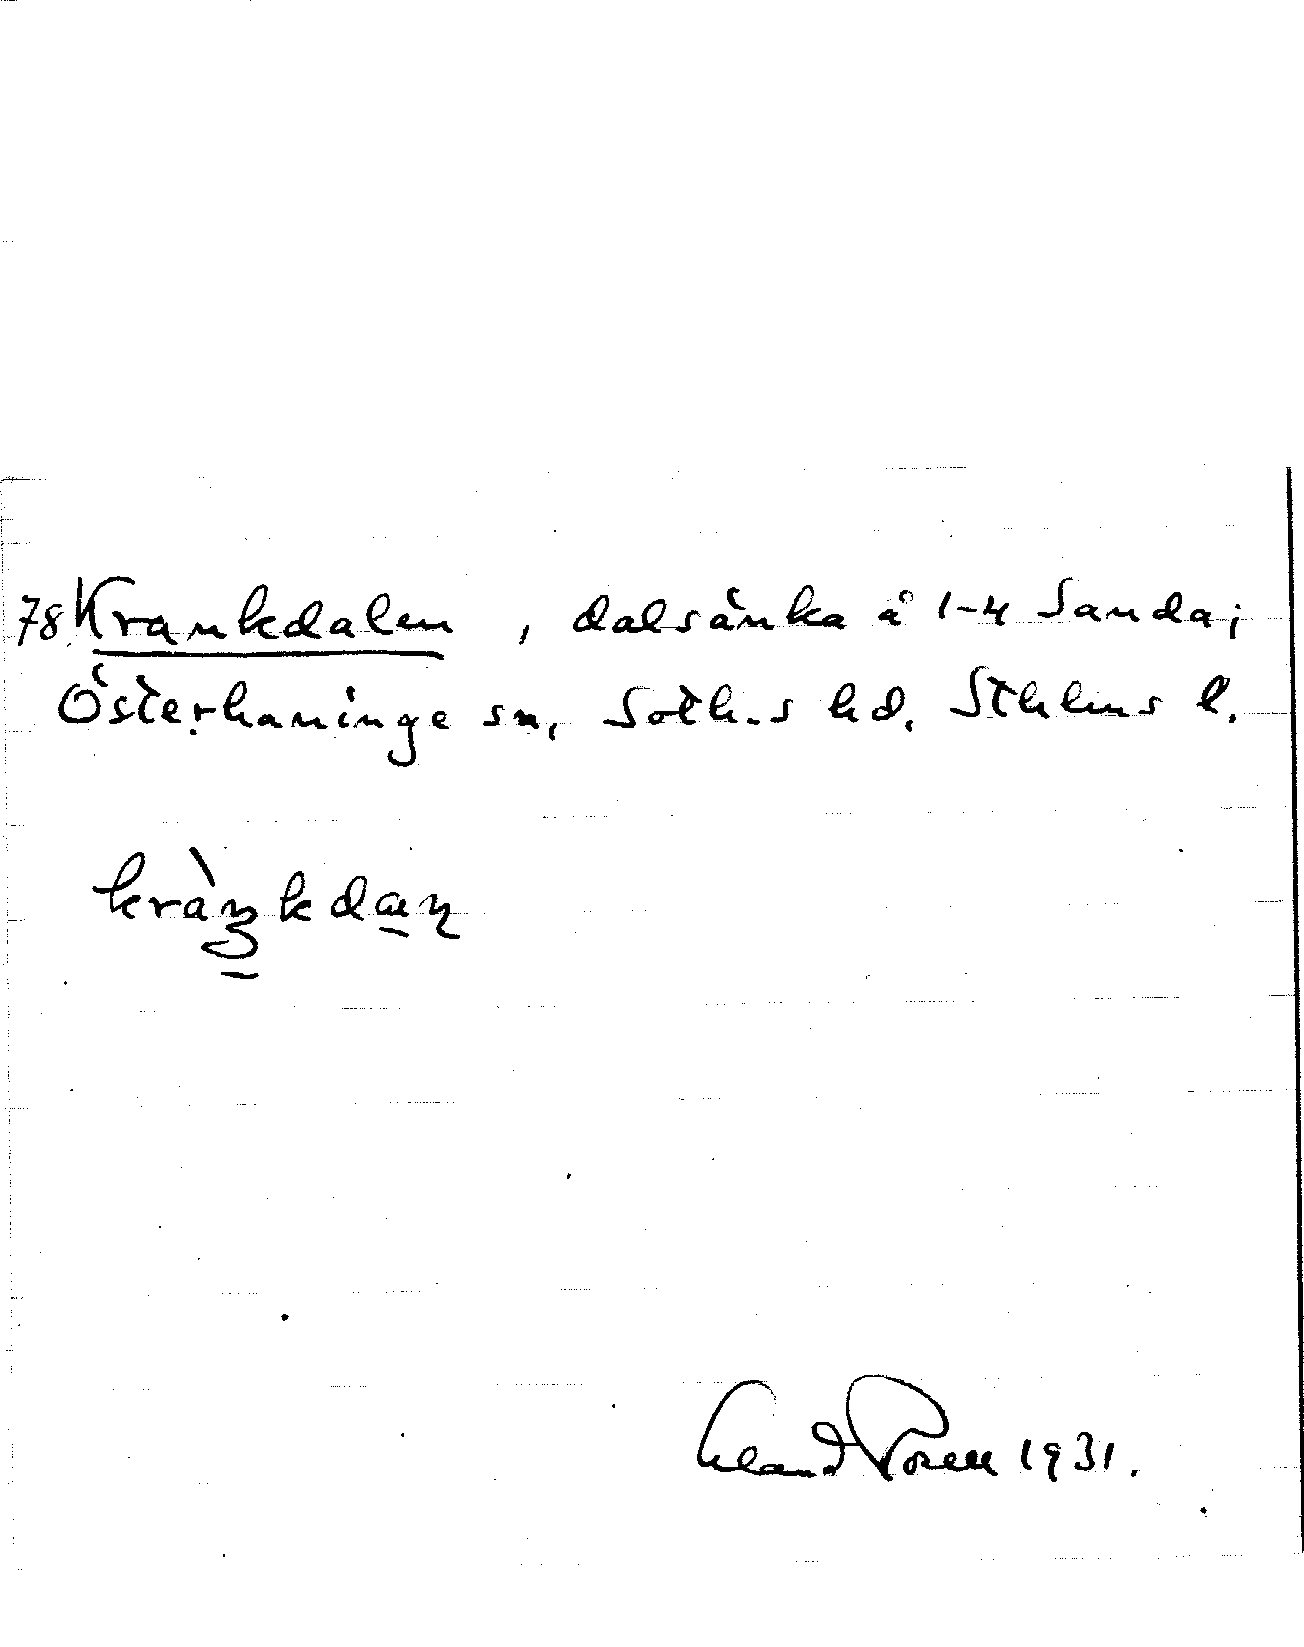 78 Krankdalen, dalsänka å 1-4 Sanda;
Österhaninge sn, Soth.s hd, Sthlms l.
kràŋkdan
Erland Rosell 1931.